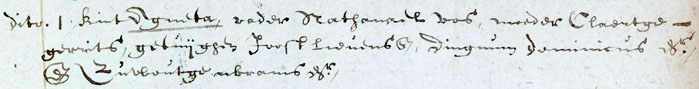 dito. 1. kint Agneta, vader Nathanael vos, moeder Claertge
gerrits, getuijghen Joost Lievens, dingnum dominicus
abrams